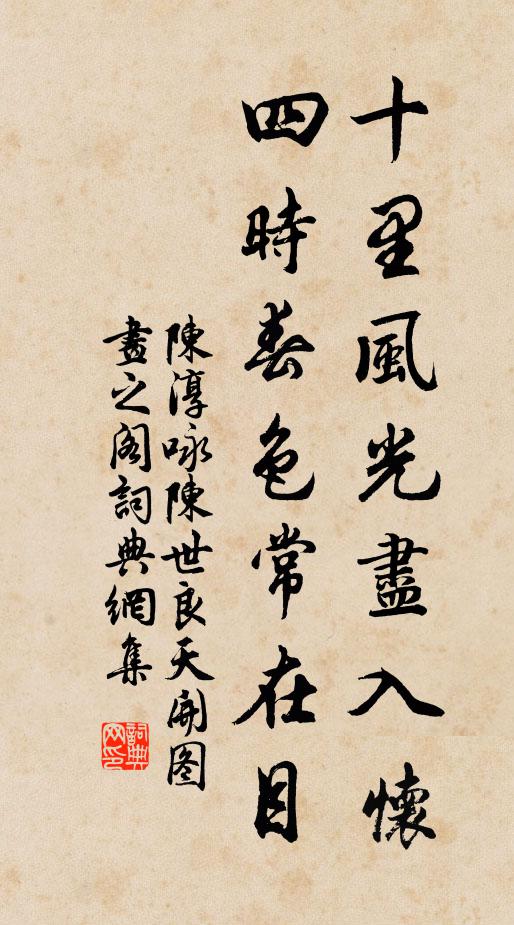 十里風光盡入懷
四時春色常在目
陳淳咏陳世良天開图
畫之阁詞典網集
詞典网印